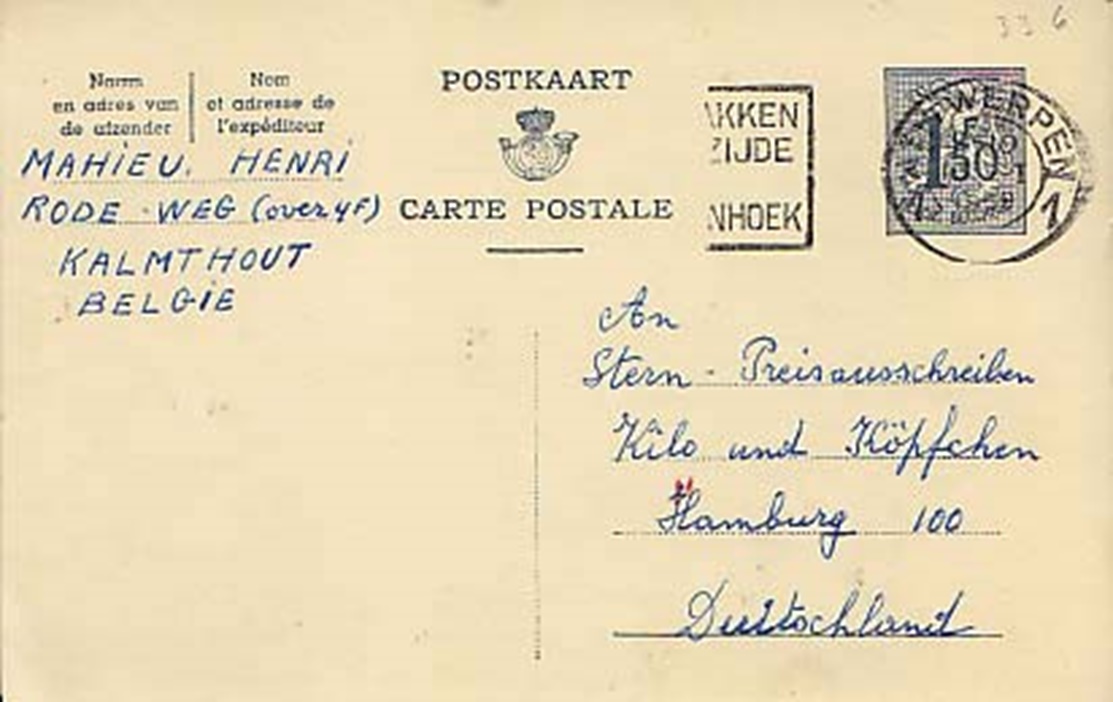 33 6
Naam
en adres van
de afzender
Nom
et adresse de
l'expéditeur
MAHIEU. HENRI
RODE WEG (over 4F)
KALMTHOUT
BELGIE
POSTKAART
CARTE POSTALE
AKKEN
ZIJDE
NHOEK
ANTWERPEN
1
1F50
An
Stern - Preisausschreiben
Kilo und Köpfchen
Hamburg 100
Deutschland